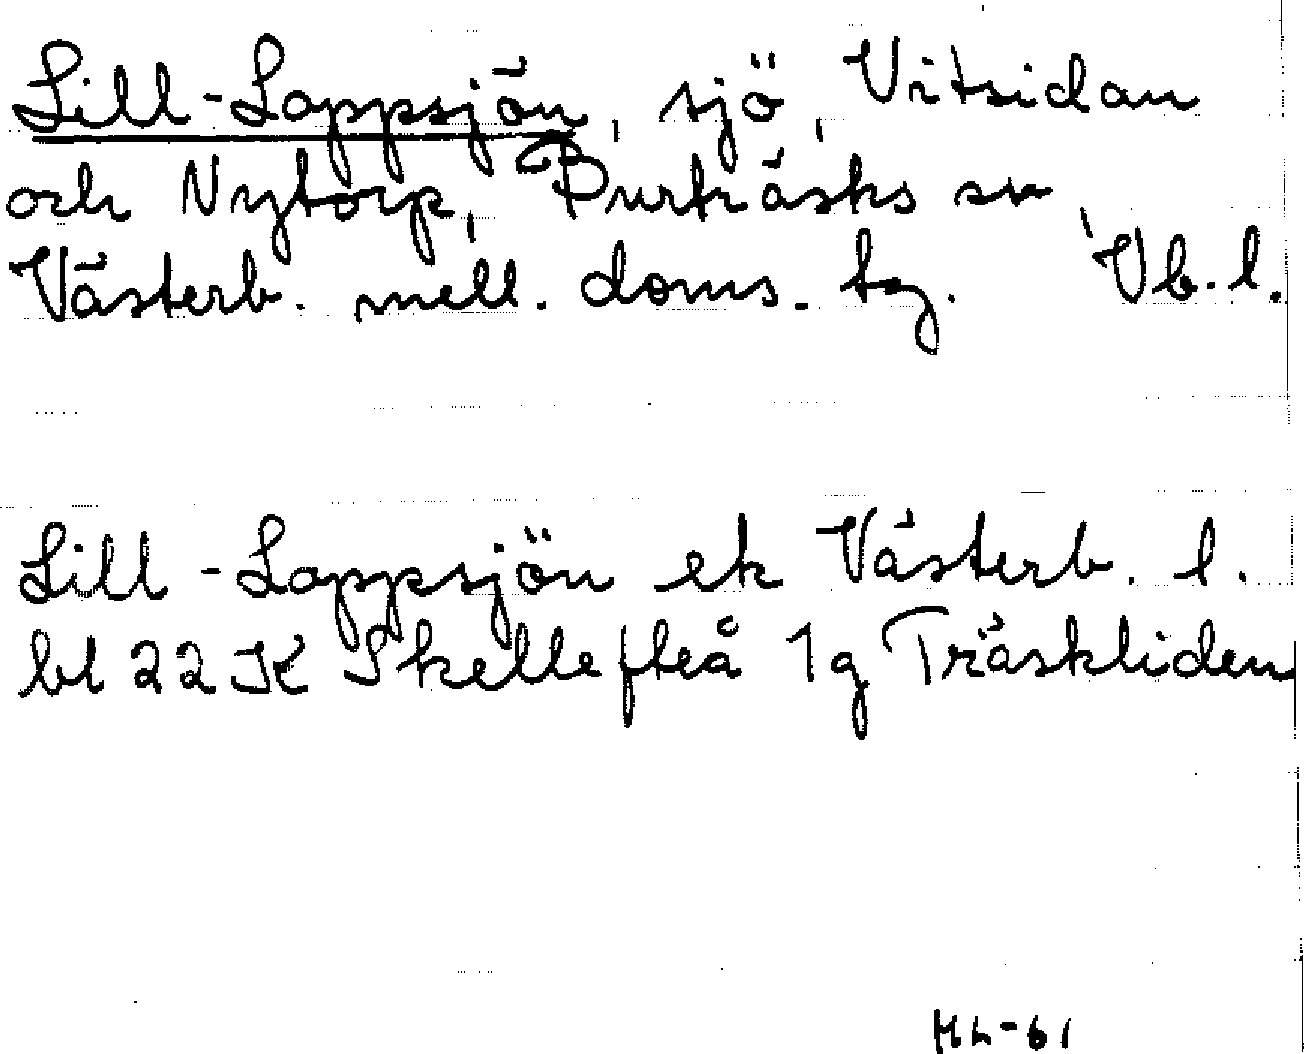 Lill-Lappsjön, sjö, Vitsidan
och Nytorp, Burträsks sn,
Västerb. mell. doms. tg. Vb. l.
Lill-Lappsjön ek Västerb. l.
bl 22K Skellefteå 1g Träskliden
HL-61